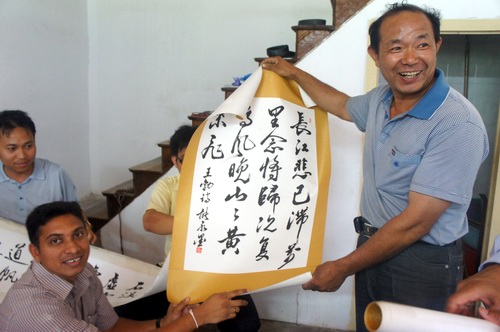 長江悲已滯萬
里念將歸況屬
高風晚山々黃
葉飛
王勃詩
道
帆